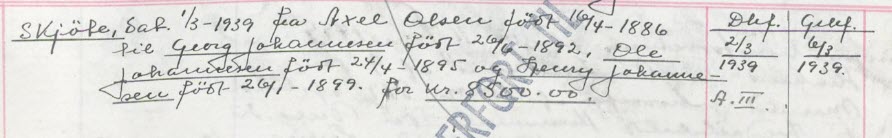 Skjöte, Dat. 1/3-1939 fra Axel Olsen född 16/4-1886
til Georg Johannesen född 26/6-1892, Ole
Johannesen född 24/4-1895 og Henry Johanne-
sen född 26/1-1899. for kr. 8500.00.
Dhf. 2/3 1939
A. III.
6/3 1939.